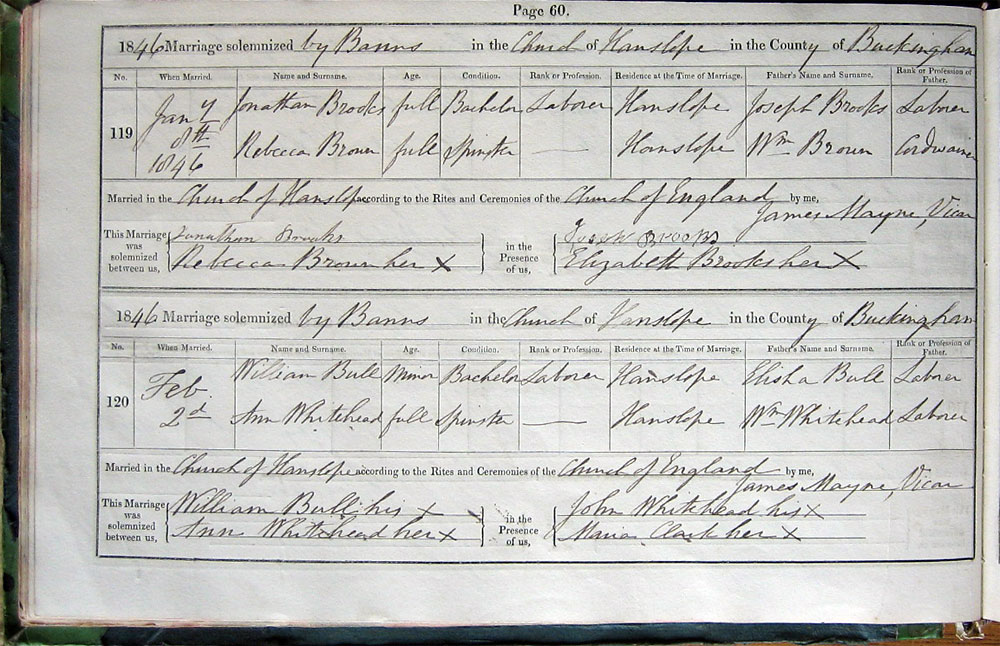 Page 60.
1846 Marriage solemnized by Banns in the Church of Hanslope in the County of Buckingham
No. When Married. Name and Surname. Age. Condition. Rank or Profession. Residence at the Time of Marriage. Father's Name and Surname. Rank or Profession of Father.
119 Jany 8th 1846 Jonathan Brooks full Bachelor Laborer Hanslope Joseph Brooks Laborer
Rebecca Brown full Spinster — Hanslope Wm Brown Cordwainer
Married in the Church of Hanslope according to the Rites and Ceremonies of the Church of England by me,
James Mayne, Vicar
This Marriage was solemnized between us, Jonathan Brooks in the Presence of us, Joseph Brooks
Rebecca Brown her X Elizabeth Brooks her X
1846 Marriage solemnized by Banns in the Church of Hanslope in the County of Buckingham
No. When Married. Name and Surname. Age. Condition. Rank or Profession. Residence at the Time of Marriage. Father's Name and Surname. Rank or Profession of Father.
120 Feb. 2d William Bull Minor Bachelor Laborer Hanslope Elisha Bull Laborer
Ann Whitehead full Spinster — Hanslope Wm Whitehead Laborer
Married in the Church of Hanslope according to the Rites and Ceremonies of the Church of England by me,
James Mayne, Vicar
This Marriage was solemnized between us, William Bull his X in the Presence of us, John Whitehead his X
Ann Whitehead her X Maria Clark her X